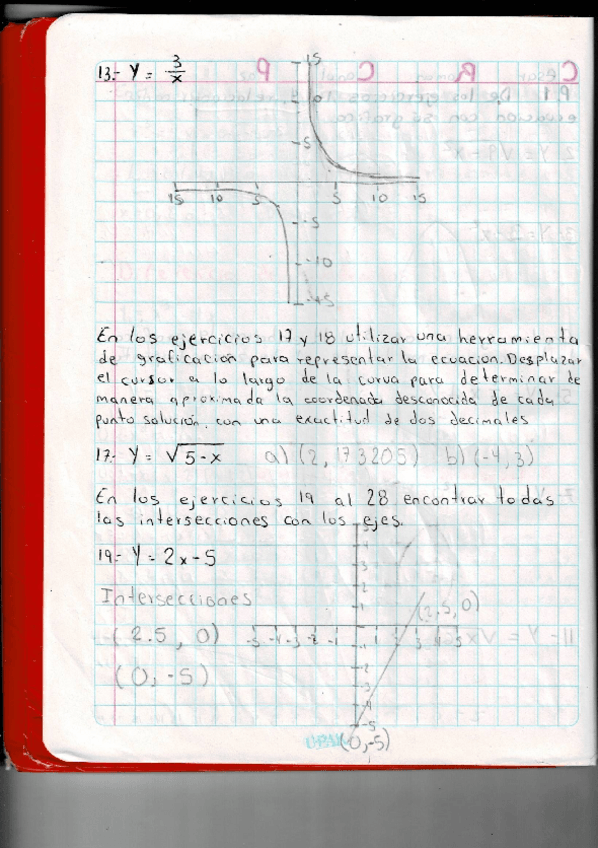 13.- Y = 3/x
15
10
5
15 10 5 5 10 15
-5
-10
-15
En los ejercicios 17 y 18 utilizar una herramienta
de graficación para representar la ecuacion. Desplazar
el cursor a lo largo de la curva para determinar de
manera aproximada la coordenada desconocida de cada
punto solución, con una exactitud de dos decimales
17.- Y = √5-x a) (2, 1.73205) b) (-4,3)
En los ejercicios 19 al 28 encontrar todas
las intersecciones con los ejes.
19.- Y = 2x-5
Intersecciones
(2.5, 0)
(2.5, 0)
(0, -5)
(0,-5)